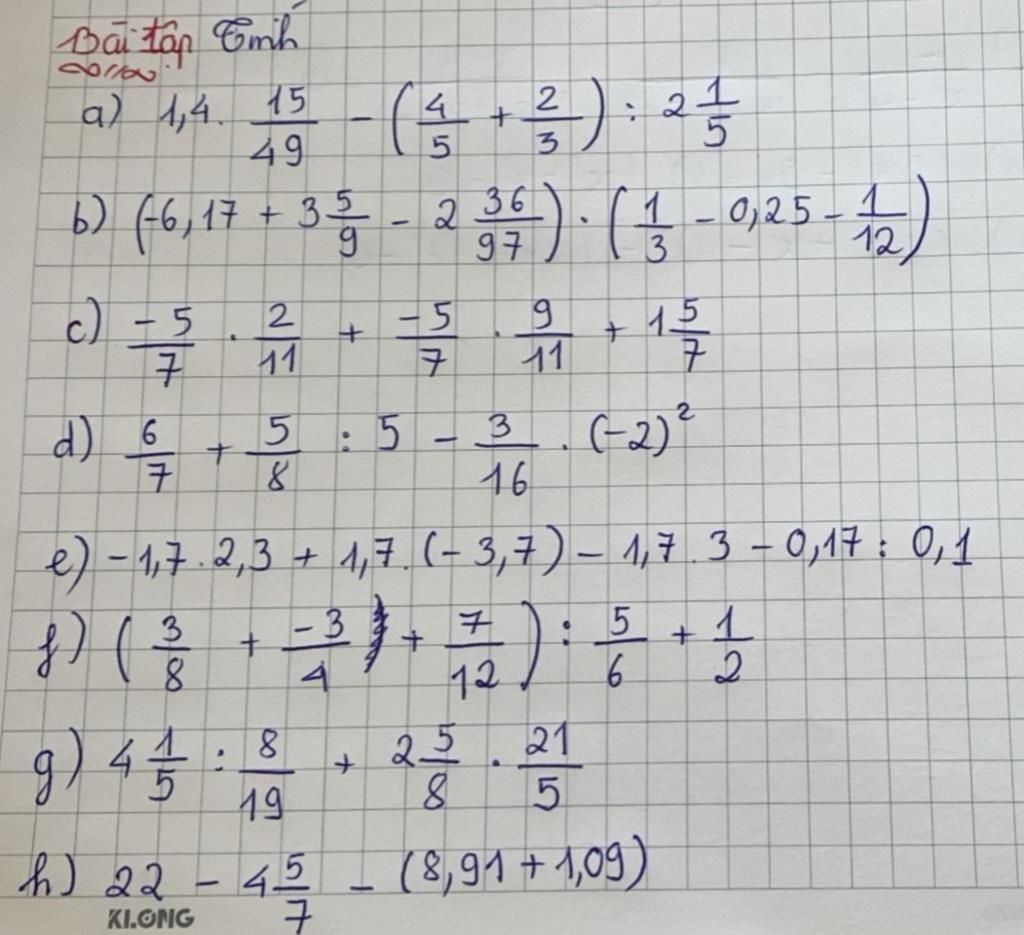 Bài tập Tính
a) 1,4. 15/49 - (4/5 + 2/3) : 2 1/5
b) (-6,17 + 3 5/9 - 2 36/97) . (1/3 - 0,25 - 1/12)
c) -5/7 . 2/11 + -5/7 . 9/11 + 1 5/7
d) 6/7 + 5/8 : 5 - 3/16 . (-2)²
e) -1,7. 2,3 + 1,7. (-3,7) - 1,7. 3 - 0,17 : 0,1
f) (3/8 + -3/4 + 7/12) : 5/6 + 1/2
g) 4 1/5 : 8/19 + 2 5/8 . 21/5
h) 22 - 4 5/7 - (8,91 + 1,09)
KLONG